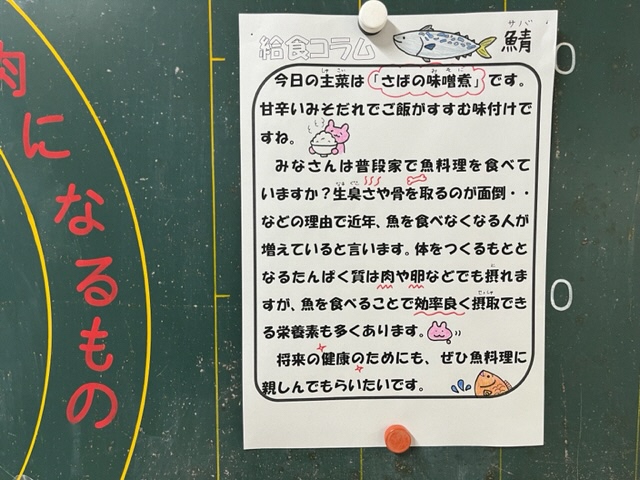 肉になるもの
給食コラム
サバ
鯖
今日の主菜は「さばの味噌煮」です。
甘辛いみそだれでご飯がすすむ味付けで
すね。
みなさんは普段家で魚料理を食べて
いますか？生臭さや骨を取るのが面倒・・
などの理由で近年、魚を食べなくなる人が
増えていると言います。体をつくるもとと
なるたんぱく質は肉や卵などでも摂れま
すが、魚を食べることで効率良く摂取でき
る栄養素も多くあります。
将来の健康のためにも、ぜひ魚料理に
親しんでもらいたいです。